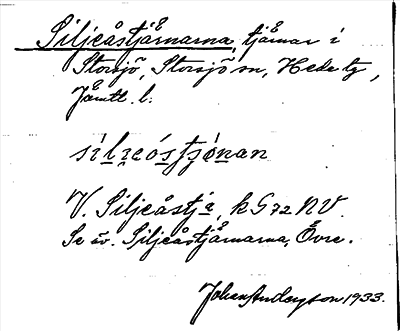 Siljeåstjärnarna, tjärnar i
Storsjö, Storsjö sn, Hede tg,
Jämtl. l.
sìlʒeóstjónan
V. Siljeåstjä, k G 72 NV.
Se äv. Siljeåstjärnarna, Övre.
Johan Anderson 1933.